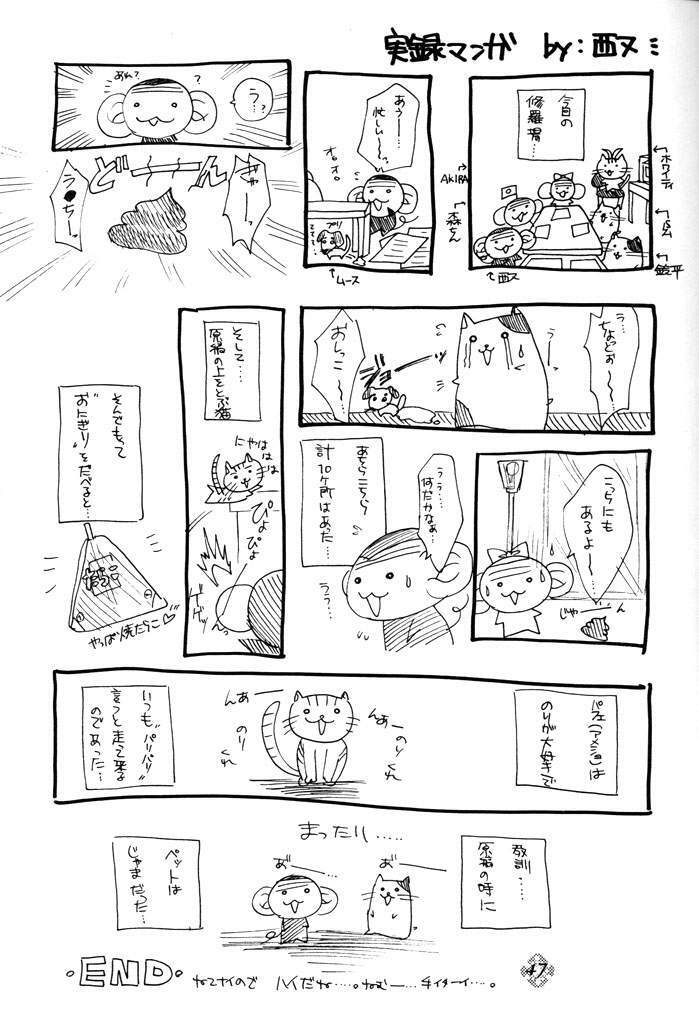 実録マンガ by:西ヌミ
今日の
修羅場…
←ホワイティ
AKIRA
←森ちん
↑西ヌ
あうー…
忙しい〜っ
オロ。
オロ。
プリ
↑ムース
あれ?
?
う…?
ぎゃーーっ
どーーん
う●ちーっ
う…
などどぉーー
う…
おしっこーー
こっちにも
あるよー…
じゃーん
あちらこちら
計10ヶ所はあった…
うぅ…
何だかなぁ…
うぅ…
そして…
原稿の上をとぶ猫
にゃはははは
ぴょ
ぴょ
ぴょ
ゲゲッ
そんでもって
“おにぎり”をたべると…
やっぱ焼たらこ♡
パフェ(アメショ)は
のりが大好きで
んあーー
のりくれ
んあー
のりくれ
いつも“パリパリ”
言うと走って来る
のであった…
まったり……
教訓……
原稿の時に
あ゛ー
あ゛ー
ペットは
じゃまだった…
・END・
ねてナイので ハイだね……。ねむー…
47